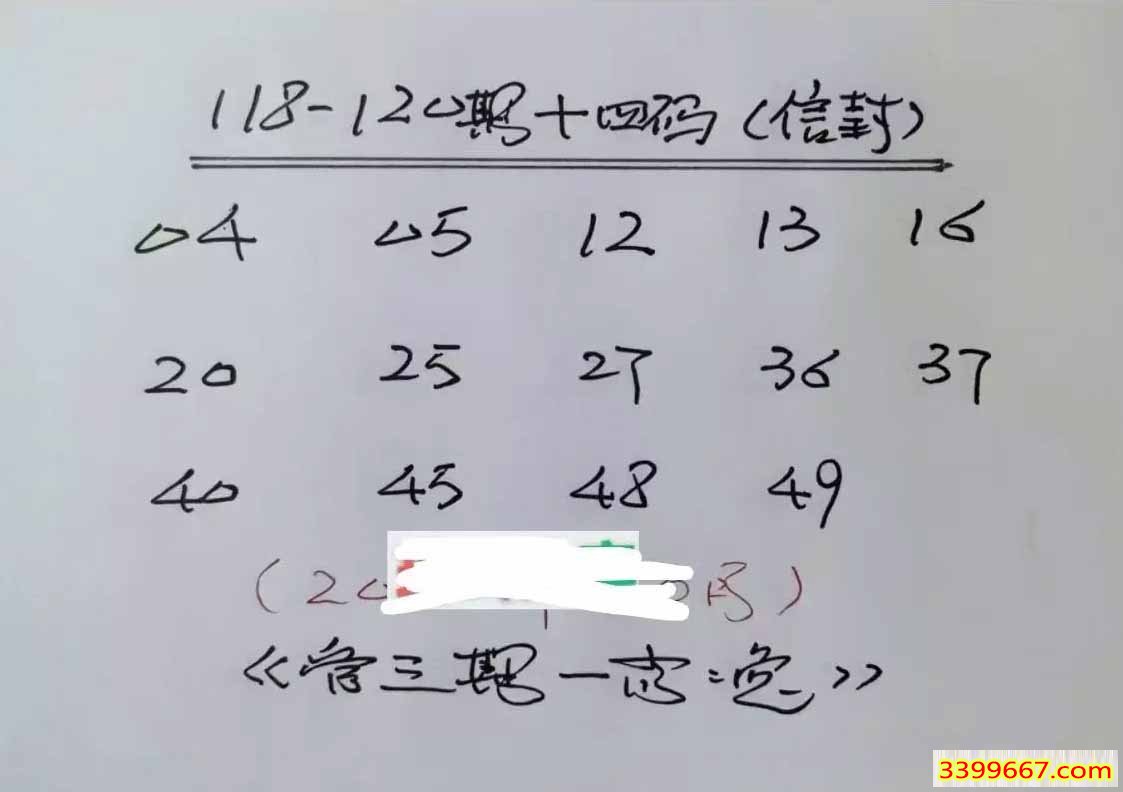 118-120期十四码(信封)
04 05 12 13 16
20 25 27 36 37
40 45 48 49
(20 码)
《管三期一 》
3399667.com